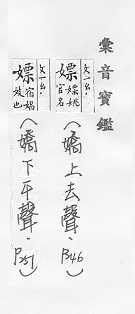 彙音寶鑑
文一出・
嫖 嫖姚
官名
(嬌上去聲・P.46)
文一出・
嫖 宿娼
放也
(嬌下平聲・P.51)